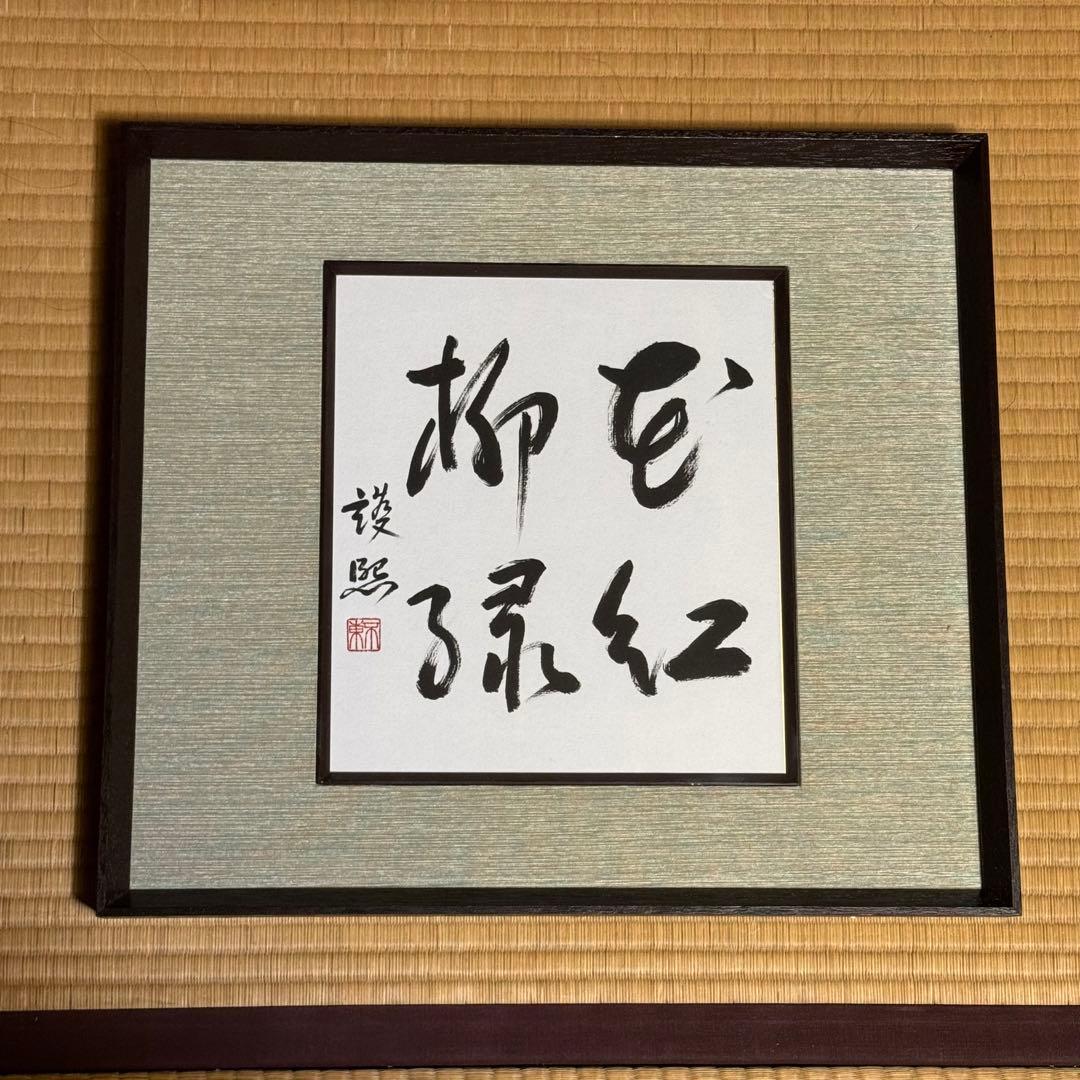 花紅
柳緑
護熙